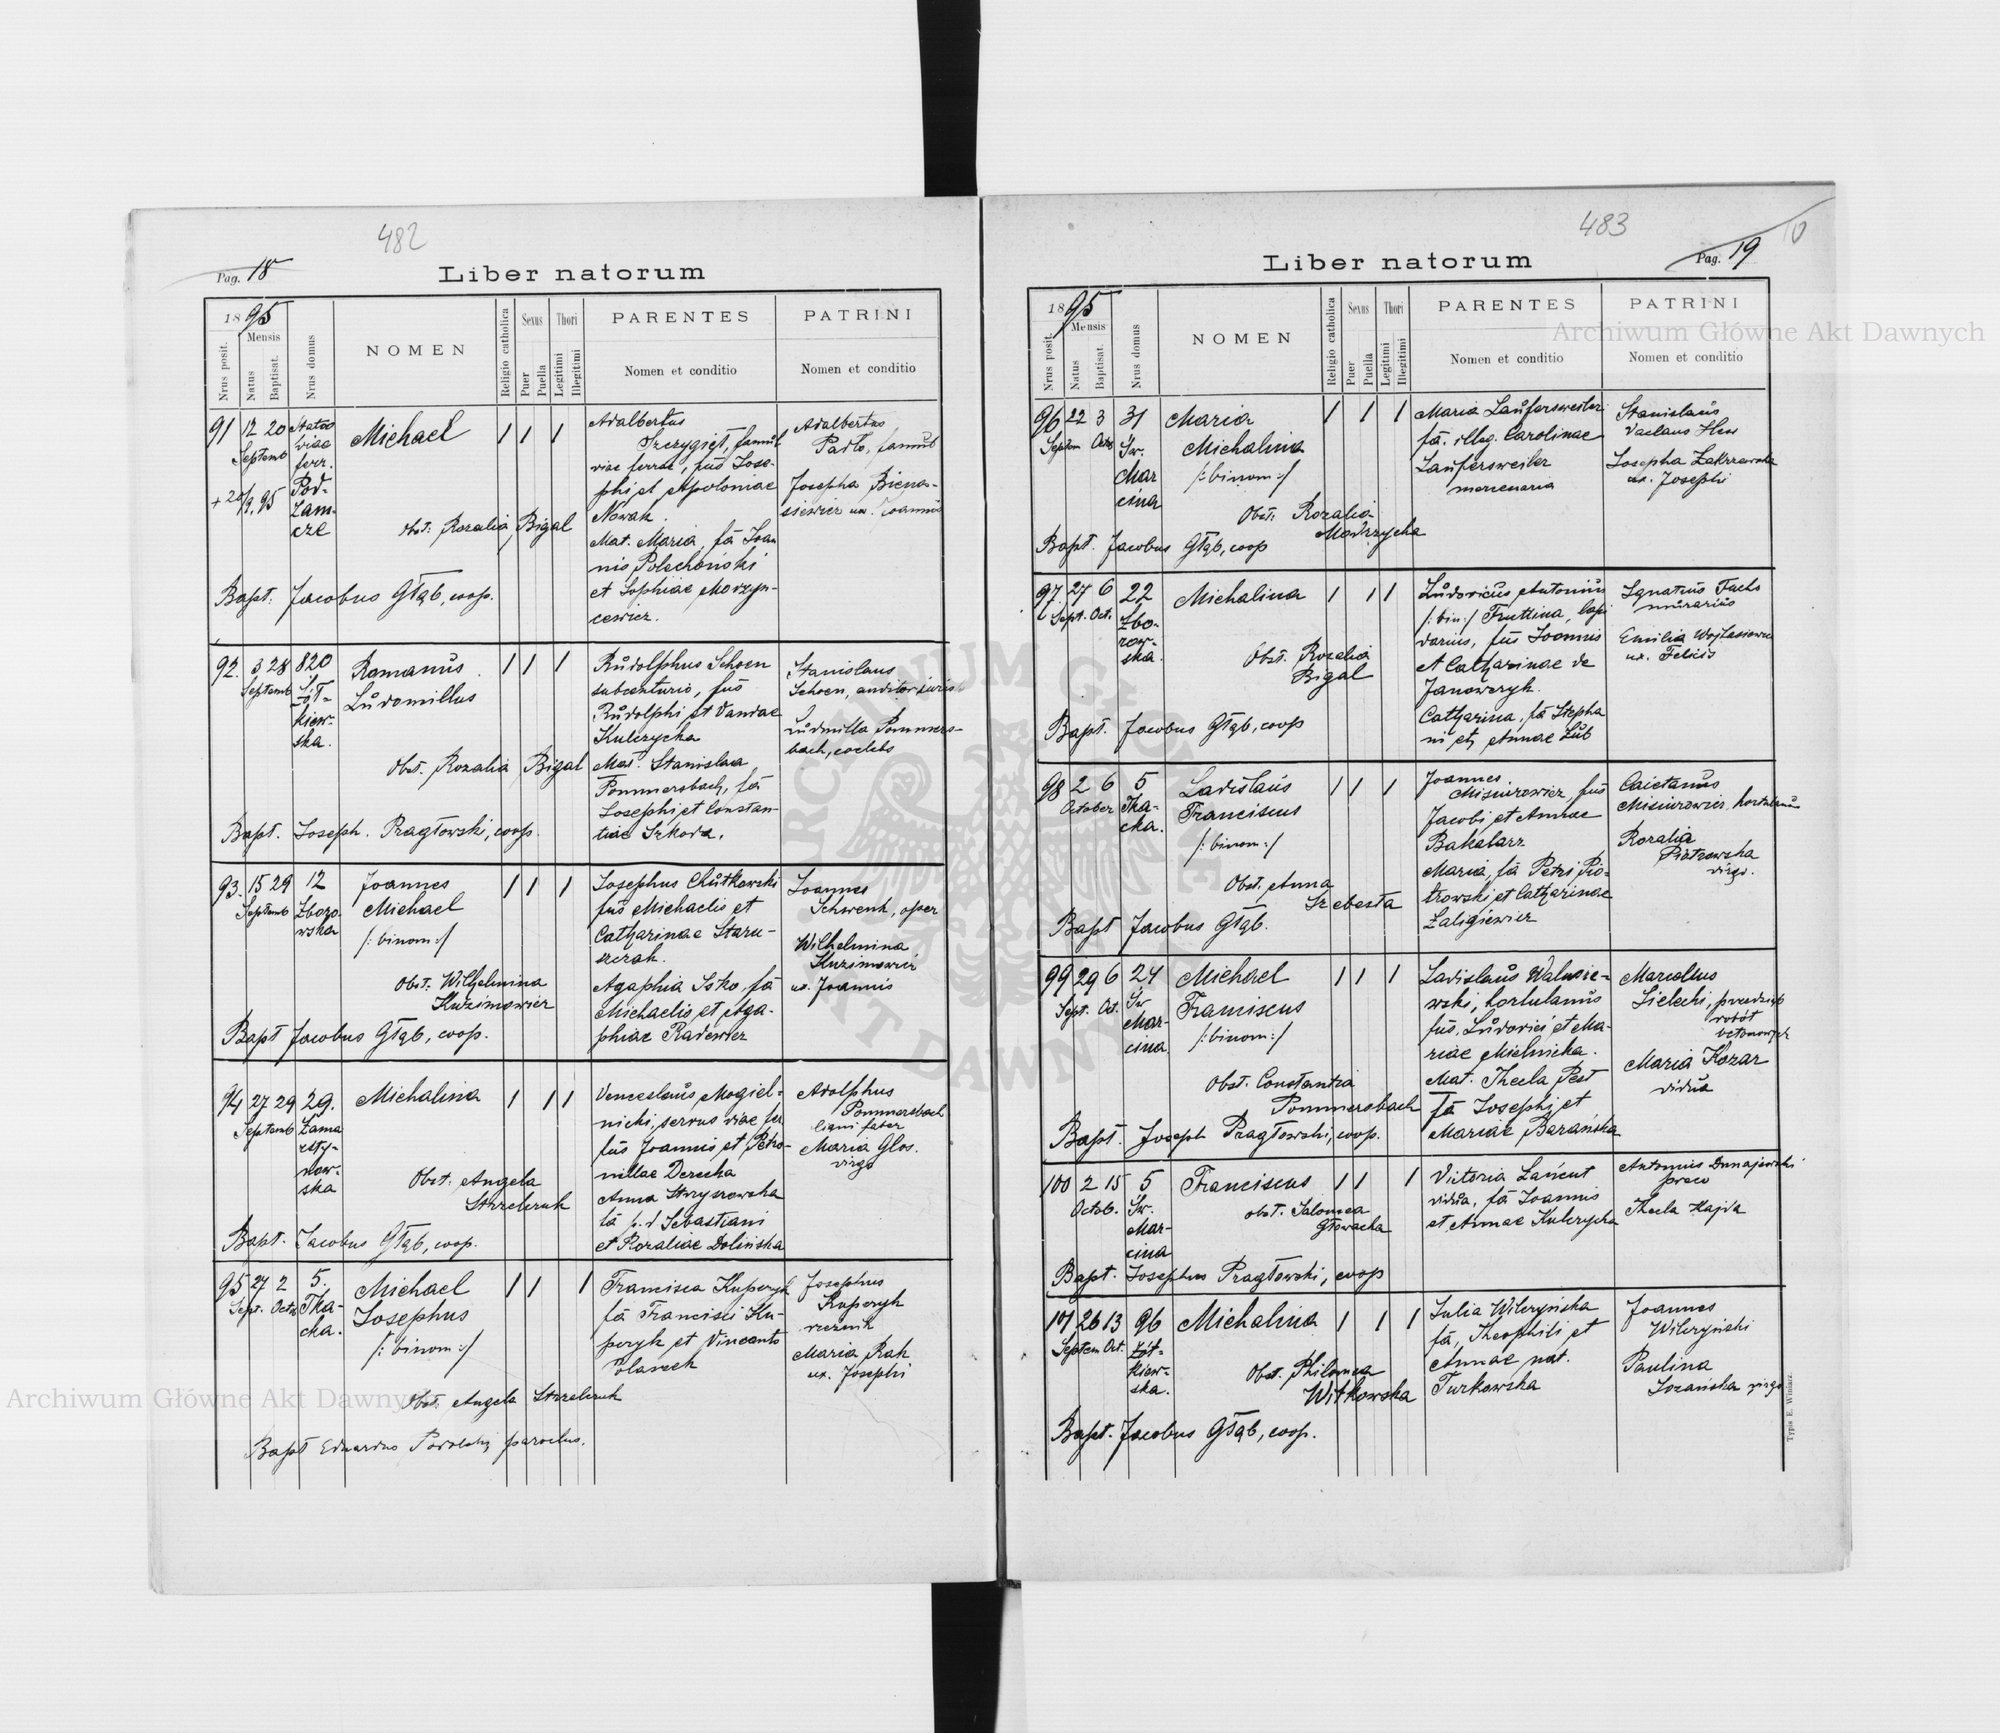 482
Pag. 18
Liber natorum
1895
Mensis
Nrus posit.
Natus
Baptisat.
Nrus domus
NOMEN
Religio catholica
Sexus
Puer
Puella
Thori
Legitimi
Illegitimi
PARENTES
Nomen et conditio
PATRINI
Nomen et conditio
91 12 20
Septemb
+ 20/9, 95
viae
ferr.
Pod-
zam-
cze
Michael
1 1 1
Adalbertus
viae ferrae, fus Jose-
phi et Apoloniae
Nowak.
Mat. Maria, fa Joan
nis
et Sophiae
cewicz.
Adalbertus
famul
Josepha Biena-
siewicz ux. Joannis
Obst. Rozalia Bigal
Bapt. Jacobus Głąb, coop.
92. 3 28 820
Septemb
Żół-
kiew-
ska.
Romanus
Ludomillus
1 1 1
Rudolphus Schoen
subcenturio, fus
Rudolphi et Vandae
Kulczycka
Mat. Stanislaa
Pommersbach, fa
Josephi et Constan-
tiae Szkoda.
Stanislaus
Schoen, auditor juris
Ludmilla Pommers-
bach, coelebs
Obst. Rozalia Bigal
Bapt. Joseph. Pragłowski, coop.
93. 15 29 12
Septemb Zboro-
wska
Joannes
Michael
/: binom :/
1 1 1
Josephus Chutkowski
fus Michaelis et
Catharinae Staru-
szczak.
Agaphia Isko, fa
Michaelis et Aga-
phiae Radewicz
Joannes
Schwenk, oper
Wilhelmina
Kuzimowicz
ux. Joannis
Obst. Wilhelmina
Kuzimowicz
Bapt Jacobus Głąb, coop.
94 27 29 29.
Septemb Zama
rsty-
now-
ska
Michalina
1 1 1
Venceslaus Mogiel-
nicki, servus viae fer
fus Joannis et Petro-
nillae Derecka
Anna Strzyszowska
fa p. d Sebastiani
et Rozaliae Dolińska
Adolphus
Pommersbach
ligni faber
Maria Glos.
virgo
Obst. Angela
Strzelczuk
Bapt. Jacobus Głąb, coop.
95 27 2 5.
Sept. Octob Tka-
cka.
Michael
Josephus
/: binom :/
1 1 1
Francisca Kuperyk
fa Francisci Ku-
peryk et Vincenta
Polaszek
Josephus
Kuperyk
rzeznik
Maria Rak
ux. Josephi
Obst. Angela Strzelczuk
Bapt Eduardus Podolski parochus.
483
Pag. 19
Liber natorum
1895
Mensis
Nrus posit.
Natus
Baptisat.
Nrus domus
NOMEN
Religio catholica
Sexus
Puer
Puella
Thori
Legitimi
Illegitimi
PARENTES
Nomen et conditio
PATRINI
Nomen et conditio
96 22 3 31
Septem Octob Św.
Mar
cina
Maria
Michalina
/: binom :/
1 1 1
Maria Laufersweiler
fa. illeg. Carolinae
Laufersweiler
mercenaria
Stanislaus
Vaclaus
Josepha Zakrzewska
ux. Josephi
Obst. Rozalia
Modrzycka
Bapt. Jacobus Głąb, coop
97. 27 6 22
Sept. Oct. Zbo-
row-
ska.
Michalina
1 1 1
Ludovicus Antonius
/: bin :/ Fruttina, lapi
darius, fus Joannis
et Catharinae de
Janowczyk.
Catharina, fa Stepha
ni et Annae Lub
Ignatius Fuchs
murarius
Emilia
ux. Felicis
Obst. Rozalia
Bigal
Bapt. Jacobus Głąb, coop
98 2 6 5
October Tka-
cka.
Ladislaus
Franciscus
/: binom :/
1 1 1
Joannes
Misiurowicz, fus
Jacobi et Annae
Bakalarz
Maria, fa Petri Pio-
trowski et Catharinae
Zaligiewicz
Caietanus
Misiurowicz, hortulanus
Rozalia
Piotrowska
virgo.
Obst. Anna
Szebesta
Bapt Jacobus Głąb.
99 29 6 24
Sept. Oct. Św
Mar-
cina
Michael
Franciscus
/: binom :/
1 1 1
Ladislaus Walusie-
wski, hortulanus
fus. Ludovici et Ma-
riae Mielnicka.
Mat. Thecla Pest
fa Josephi et
Mariae Barańska
Marcellus
Sielecki, przedsięb
robót
betonowych
Maria Kozar
vidua
Obst. Constantia
Pommersbach
Bapt. Joseph Pragłowski, coop.
100 2 15 5
Octob. Św.
Mar-
cina
Franciscus
1 1 1
Victoria Lańcut
vidua, fa Joannis
et Annae Kulczycka
Antonius Dunajewski
praco
Thecla Hajda
obst. Salomea
Głowacka
Bapt. Josephus Pragłowski, coop
101 26 13 96
Septem Oct. Żół-
kiew-
ska.
Michalina
1 1 1
Julia Wilczyńska
fa, Theophili et
Annae nat.
Turkowska
Joannes
Wilczyński
Paulina
Sozańska virgo
Obst. Philomea
Witkowska
Bapt. Jacobus Głąb, coop.
Typis E. Winiarz.
Archiwum Główne Akt Dawnych
Archiwum Główne Akt Dawnych